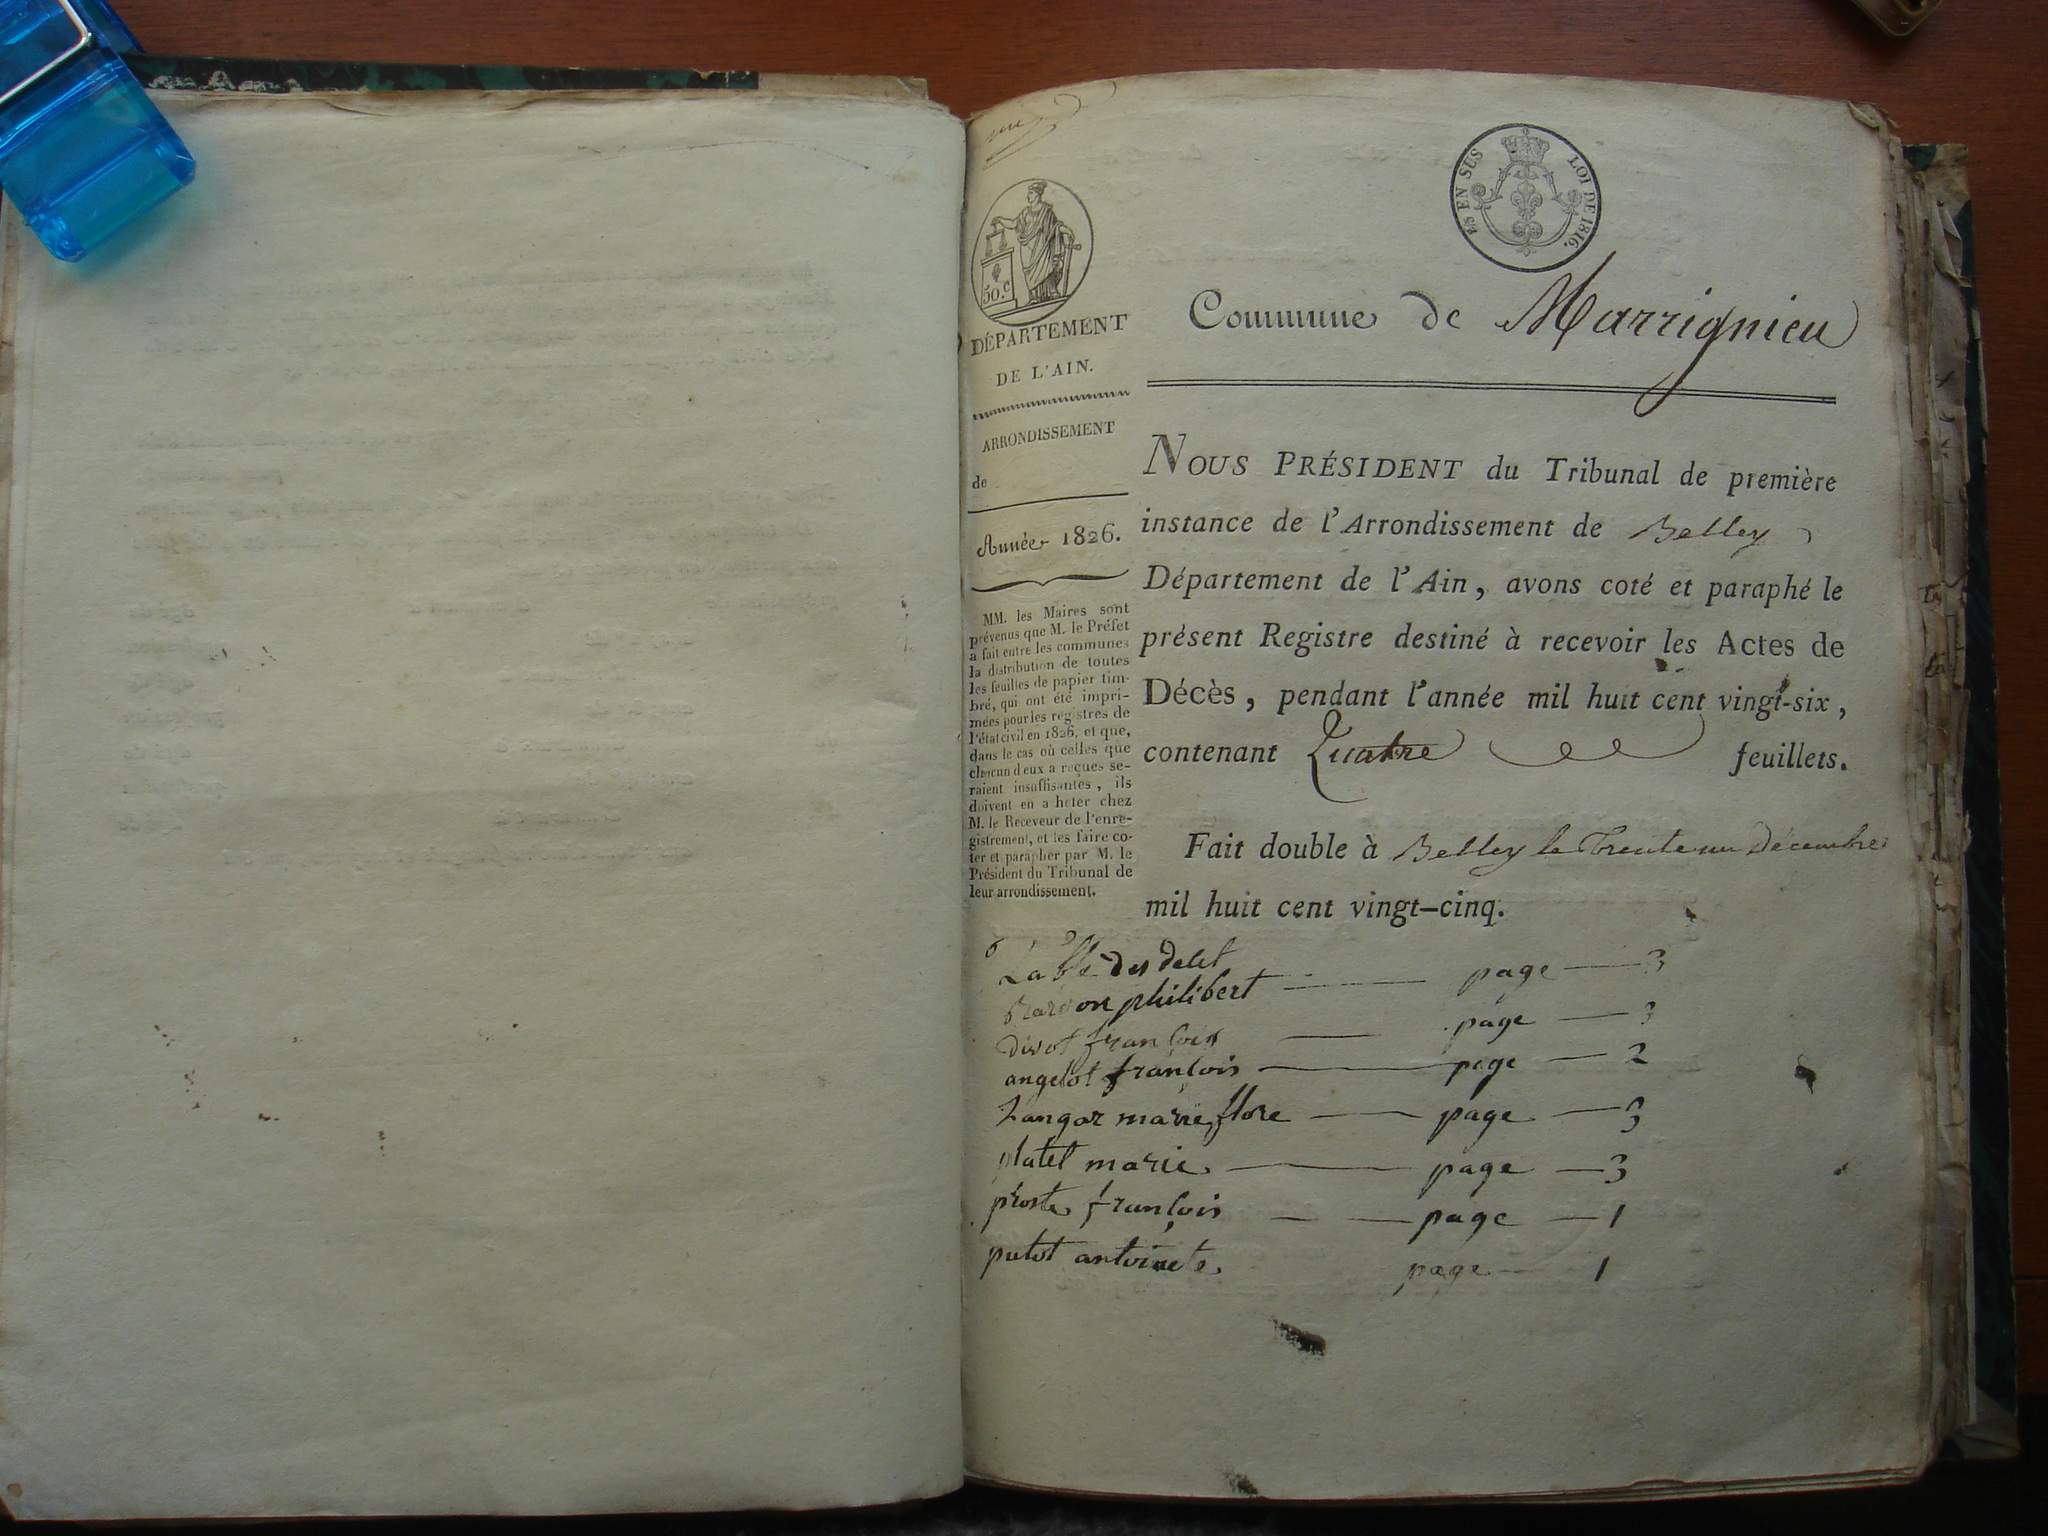 une
⅕ EN SUS LOI DE 1816.
50.c
DÉPARTEMENT
DE L'AIN.
ARRONDISSEMENT
de
Année 1826.
MM. les Maires sont
prévenus que M. le Préfet
a fait entre les communes
la distribution de toutes
les feuilles de papier tim-
bré, qui ont été impri-
mées pour les registres de
l'état civil en 1826, et que,
dans le cas où celles que
chacun d'eux a reçues se-
raient insuffisantes, ils
doivent en a heter chez
M. le Receveur de l'enre-
gistrement, et les faire co-
ter et parapher par M. le
Président du Tribunal de
leur arrondissement.
Commune de Marrignieu
NOUS PRÉSIDENT du Tribunal de première
instance de l'Arrondissement de Belley
Département de l'Ain, avons coté et paraphé le
présent Registre destiné à recevoir les Actes de
Décès, pendant l'année mil huit cent vingt-six,
contenant Quatre feuillets.
Fait double à Belley le Trente un Décembre
mil huit cent vingt-cinq.
des
philibert — page — 3
françois — page — 3
angelot françois — page — 2
marie flore — page — 3
platel marie — page — 3
proste françois — page — 1
putot antoinete page — 1